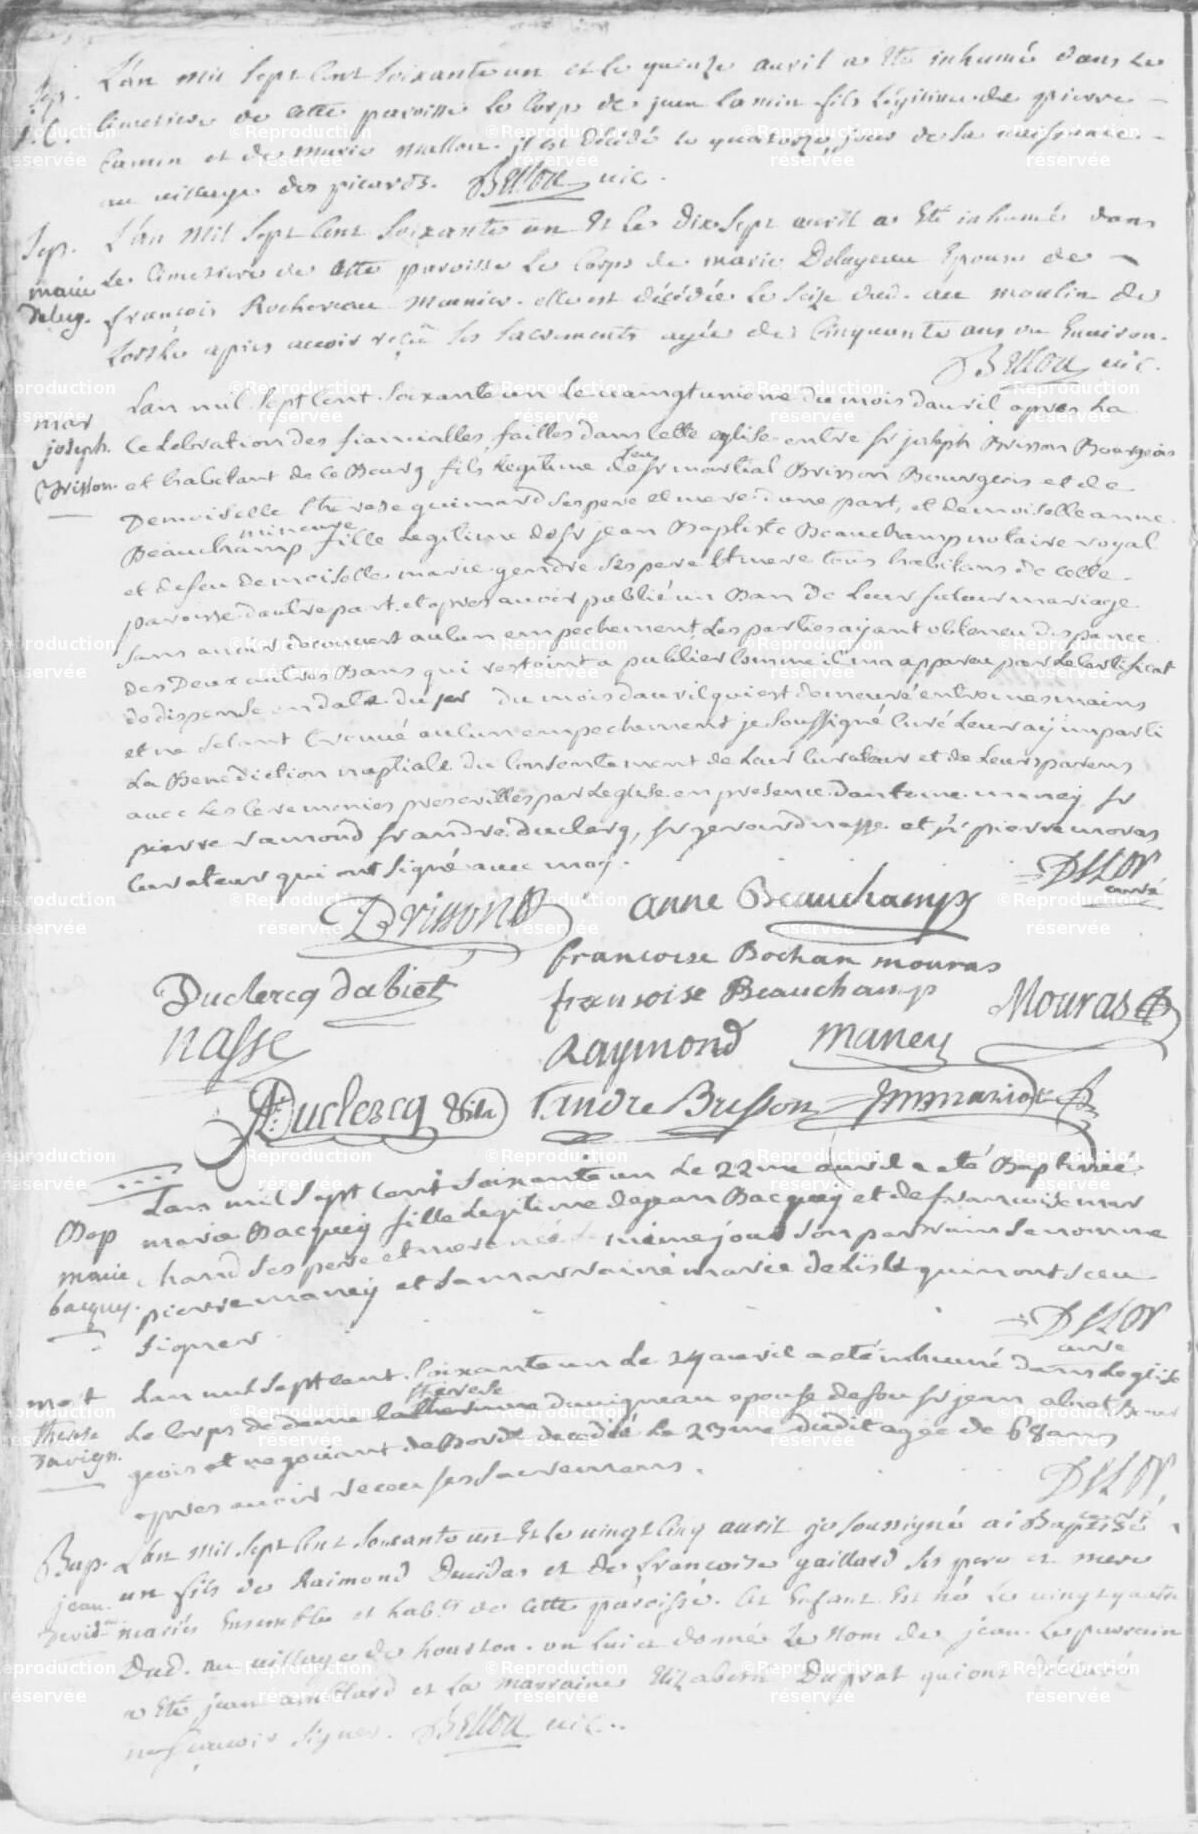 Sep.
J. C.
L'an mil sept cent soixante un et le quinze avril a eté inhumé dans le
cimetiere de cette paroisse le corps de jean Camin fils légitime de pierre
Camin et de marie mallou. il est décédé le quatorze, jour de sa naissance
au village des picards. Bellou vic.
Sep.
marie
Delug.
L'an mil sept cent soixante un et le dix sept avril a eté inhumée dans
le cimetiere de cette paroisse le corps de marie Delageau Epouse de
françois Rochereau meunier. elle est décédée le seize dud. au moulin de
après avoir reçu les sacrements agée de cinquante ans ou environ.
Bellou vic.
mar
joseph.
Brisson
Lan mil sept cent soixante un le vaingtunieme du mois davril apres la
celebration des fiancialles faittes dans cette eglise entre sr joseph Brisson Bourgeois
et habitant de ce Bourg fils legitime de feu sr martial Brisson Bourgeois et de
Demoiselle therese guimard ses pere et mere dune part, et demoiselle anne
Beauchamp mineure fille legitime de sr jean Baptiste Beauchamp notaire royal
et de feu demoiselle marie gendre ses pere et mere tous habitans de cette
paroisse dautre part, et apres avoir publié un Ban de leur futur mariage
sans avoir decouvert aucun empechement, les parties ayant obteneu dispance
des Deux autres Bans qui restoint a publier comme il ma appareu par le certificat
de dispense en date du 1er du mois davril qui est demeuré entre mes mains
et ne setant trouvé aucun empechement je soussigné curé leur ay imparti
la Benediction nuptiale du consentement de leur curateur et de leurs parens
avec les ceremonies prescrittes par leglise en presence dantoine maney sr
pierre ramond sr andre duclerq, sr gerourd nasse et sr pierre moras
curateur qui ont signé avec moy.
Delor
curé
Brisson
anne Beauchamp
francoise Bochan mouras
Duclercq dabiet
fransoise Beauchamp
Mouras
nasse
Raymond
maney
Duclercq fils
andre Brisson
Jmmariot
Bap
marie
bacquey.
Lan mil sept cent soixante un le 22me davril a eté Baptisée
marie Bacquey fille legitime de jean Bacquey et de francoise mar
chand ses pere et mere née le meme jour son parrain se nomme
pierre maney et sa marraine marie delisle qui nont sceu
signer
Delor
curé
mort
therese
davign.
Lan mil sept cent soixante un le 24 avril a eté inhumé dans leglise
le corps de dame catherinne therese davigneau epouse de feu sr jean abiet Bour
geois et negociant de Bordx decedée le 23me dudit agée de 68 ans
apres avoir receu ses sacremens.
Delor
curé
Bap.
jean
Devid
L'an mil sept cent soixante un et le vingt cinq avril je soussigné ai Baptisé
un fils de Raimond Devidas et de francoise gaillard ses pere et mere
mariés Ensemble et habts de cette paroisse. cet Enfant est né le vingt quatre
Dud. au village de houston. on lui a donné le nom de jean. le parrain
a eté jean amelard et la marraine Elizabeth Duprat qui ont déclaré
ne sçavoir signer. Bellou vic.
©Reproduction
réservée